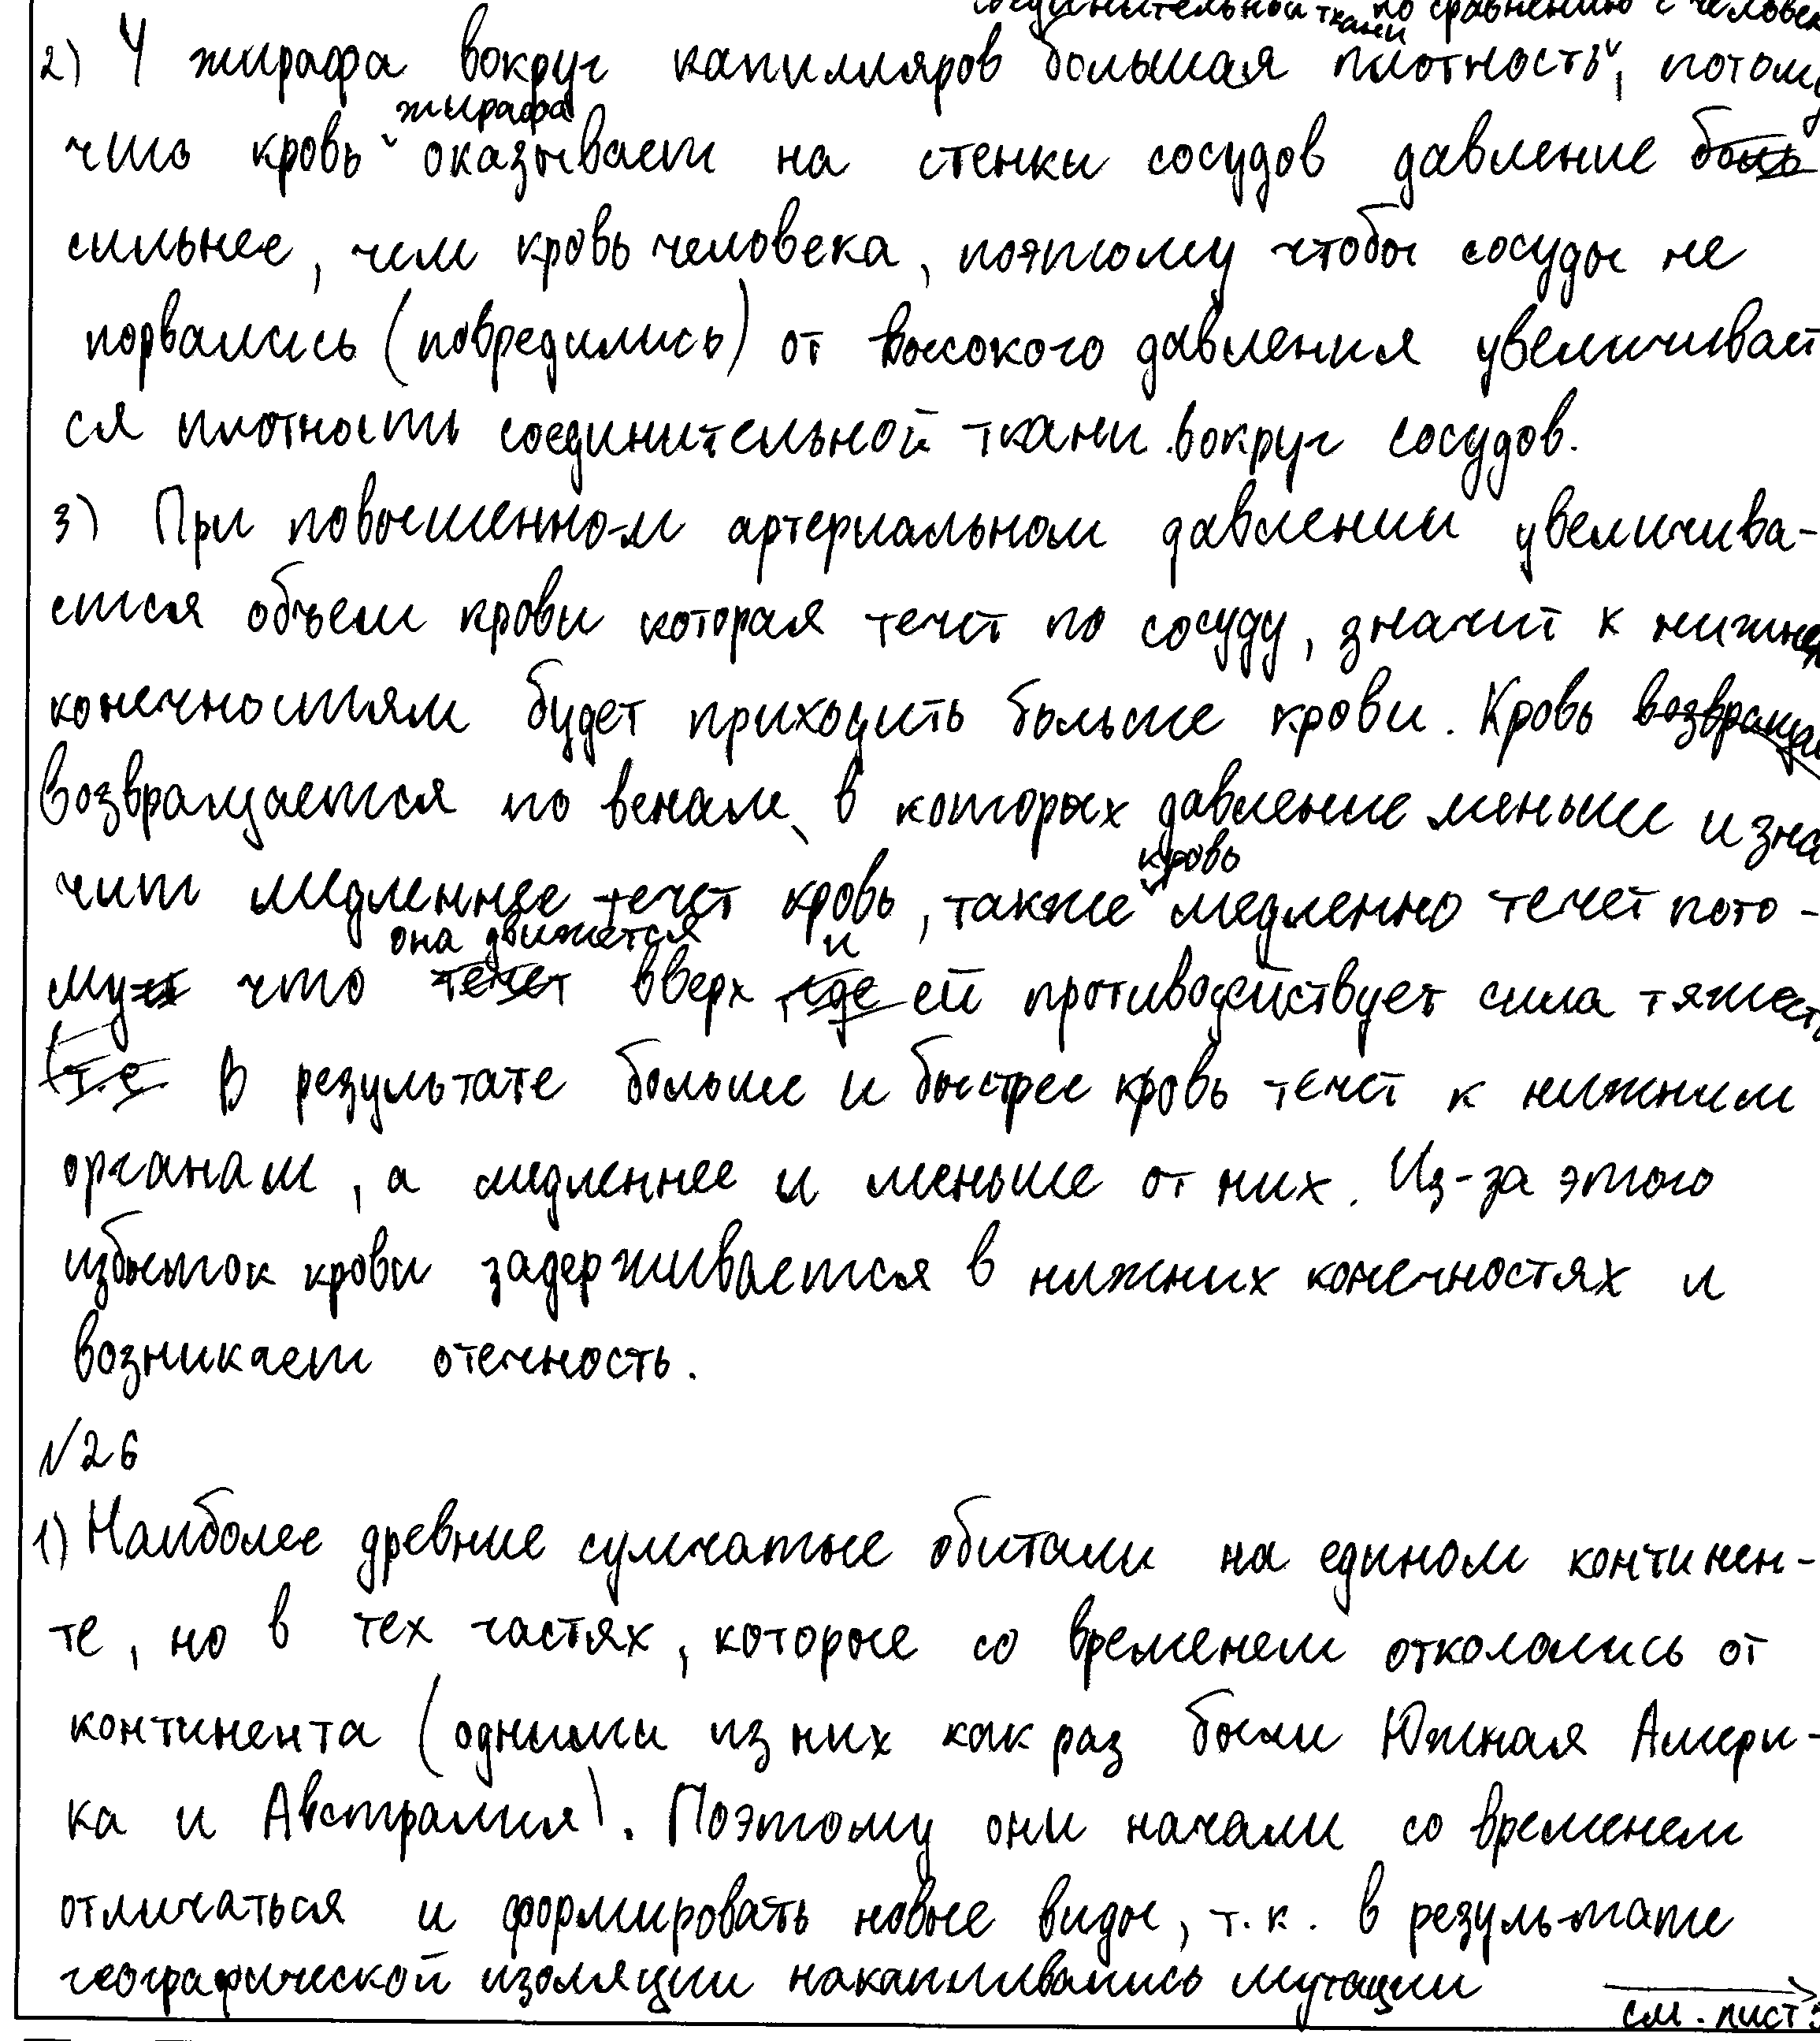 соединительной ткани по сравнению с человек
2) У жирафа вокруг капилляров большая плотность, потому
что кровь жирафа оказывает на стенки сосудов давление
сильнее, чем кровь человека, поэтому чтобы сосуды не
порвались (повредились) от высокого давления увеличивает
ся плотность соединительной ткани вокруг сосудов.
3) При повышенном артериальном давлении увеличива-
ется объем крови которая течет по сосуду, значит к нижн
конечностям будет приходить больше крови. Кровь возвраща
возвращается по венам, в которых давление меньше и зна
чит медленнее течет кровь, также кровь медленно течет пото-
му что она движется вверх и ей противодействует сила тяжест
(т.е. В результате больше и быстрее кровь течет к нижним
органам, а медленнее и меньше от них. Из-за этого
избыток крови задерживается в нижних конечностях и
возникает отечность.
№26
1) Наиболее древние сумчатые обитали на едином континен-
те, но в тех частях, которые со временем откололись от
континента (одними из них как раз были Южная Амери-
ка и Австралия). Поэтому они начали со временем
отличаться и формировать новые виды, т.к. в результате
географической изоляции накапливались мутации
см. лист